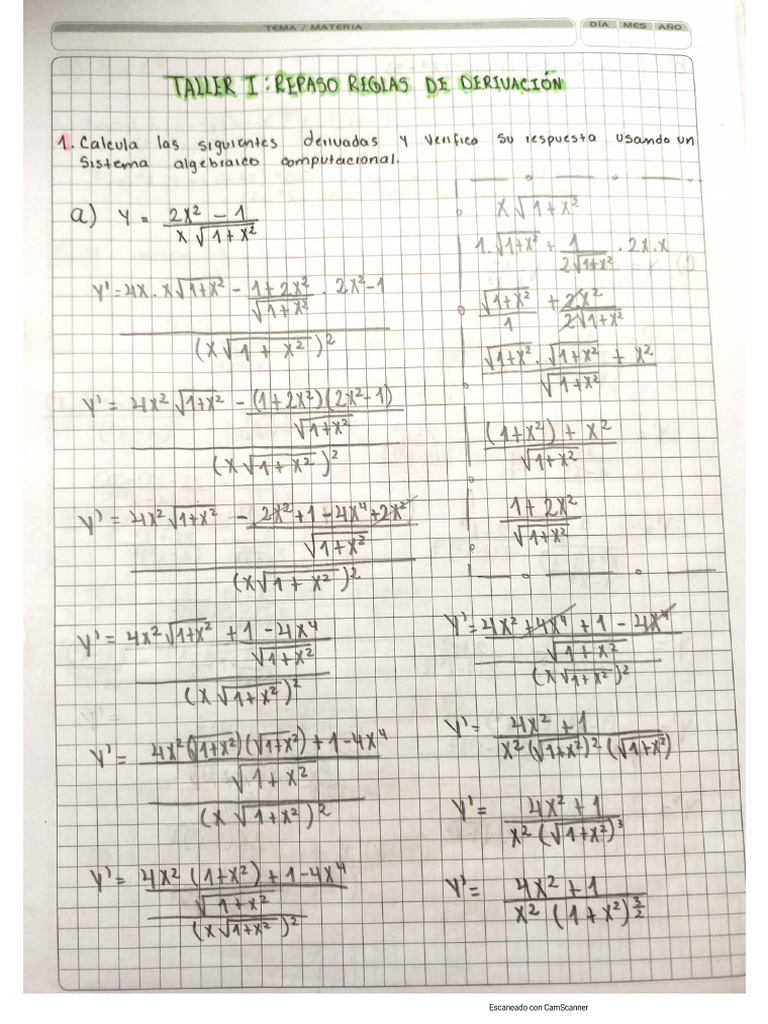 TEMA / MATERIA
DÍA MES AÑO
TALLER I: REPASO REGLAS DE DERIVACIÓN
1. Calcula las siguientes derivadas y verifica su respuesta usando un
sistema algebraico computacional.
a) Y = (2x² - 1) / (x√(1+x²))
Y' = (4x · x√(1+x²) - (1+2x²)/√(1+x²) · 2x²-1) / (x√(1+x²))²
Y' = (4x²√(1+x²) - (1+2x²)(2x²-1)/√(1+x²)) / (x√(1+x²))²
Y' = (4x²√(1+x²) - (2x²+1-4x⁴+2x²)/√(1+x²)) / (x√(1+x²))²
Y' = (4x²√(1+x²) + (1-4x⁴)/√(1+x²)) / (x√(1+x²))²
Y' = ((4x²(√(1+x²))(√(1+x²)) + 1-4x⁴)/√(1+x²)) / (x√(1+x²))²
Y' = ((4x²(1+x²) + 1-4x⁴)/√(1+x²)) / (x√(1+x²))²
x√(1+x²)
1·√(1+x²) + 1/(2√(1+x²)) · 2x·x
√(1+x²)/1 + 2x²/(2√(1+x²))
(√(1+x²) · √(1+x²) + x²)/√(1+x²)
((1+x²) + x²)/√(1+x²)
(1+2x²)/√(1+x²)
Y' = ((4x² + 4x⁴ + 1 - 4x⁴)/√(1+x²)) / (x√(1+x²))²
Y' = (4x² + 1) / (x²(√(1+x²))² (√(1+x²)))
Y' = (4x² + 1) / (x²(√(1+x²))³)
Y' = (4x² + 1) / (x²(1+x²)^(3/2))
Escaneado con CamScanner